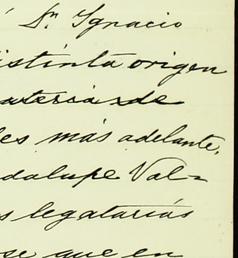 Dn. Ignacio
istinta origen
ateria de
les más adelante,
dalupe Val=
s legatarias
se que en